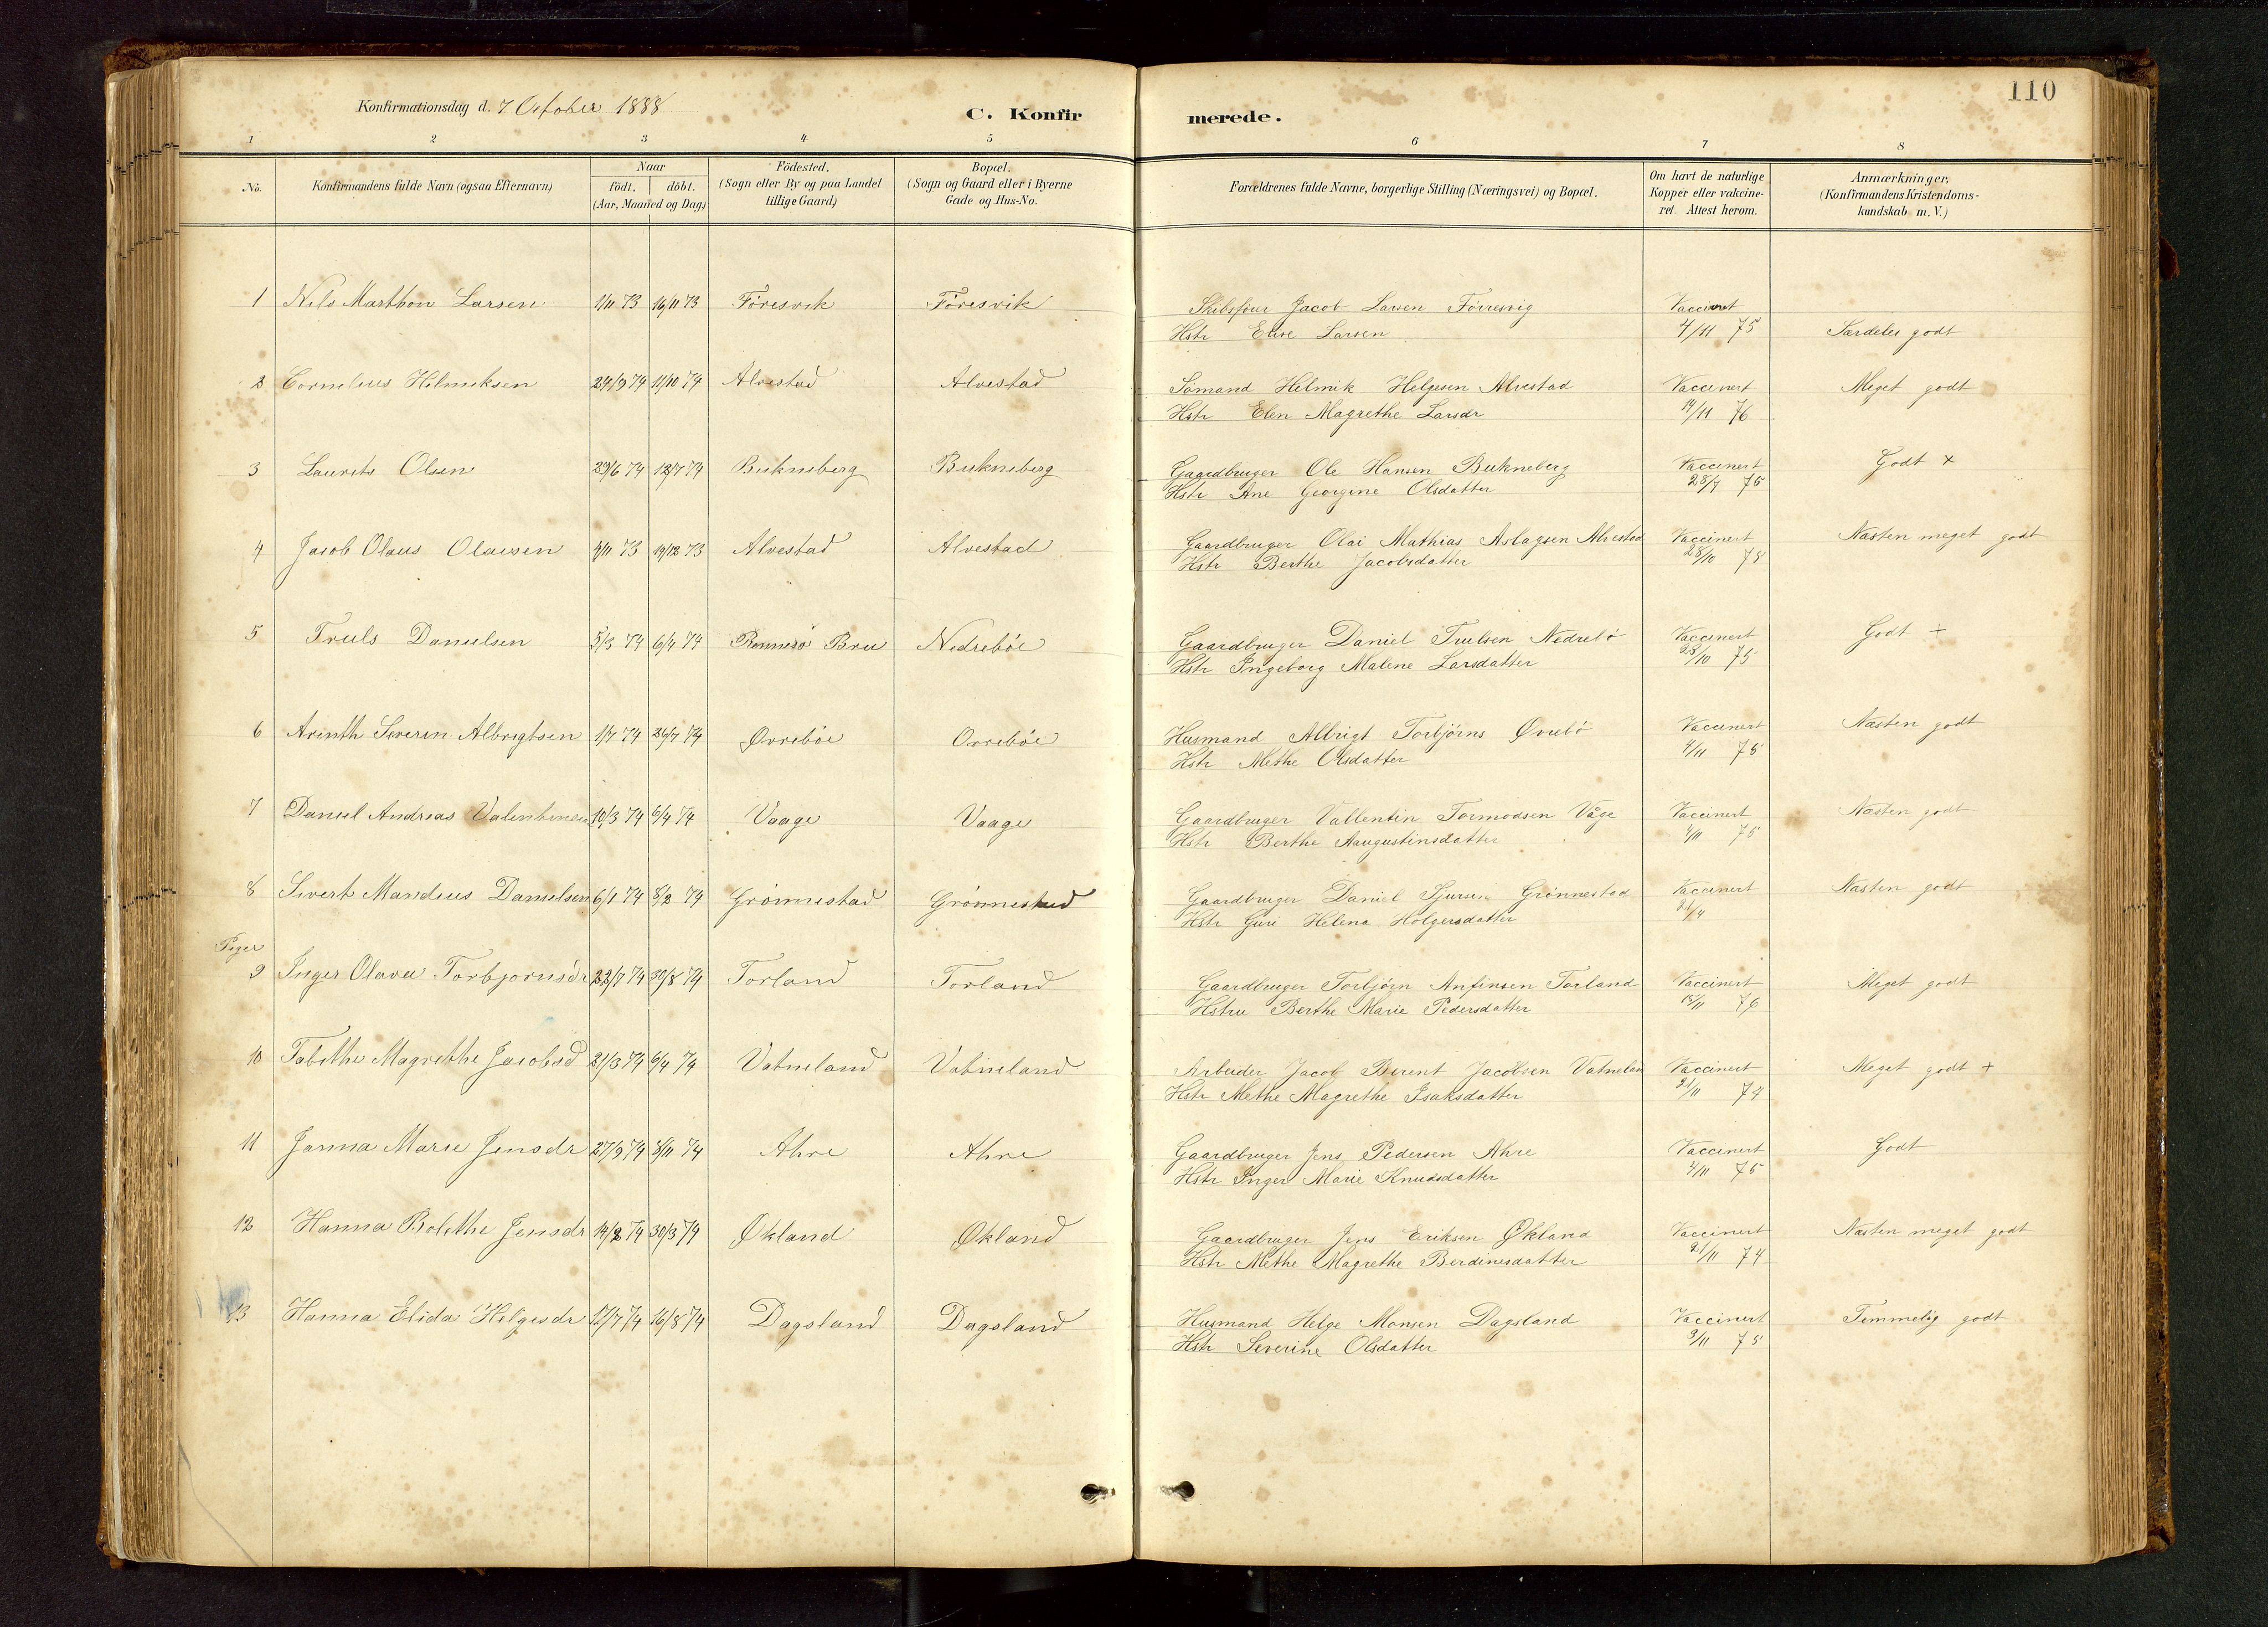 110
Konfirmationsdag d. 7 October 1888
C. Konfirmerede.
1 2 3 4 5 6 7 8
No.
Konfirmandens fulde Navn (ogsaa Efternavn)
Naar
födt. döbt.
(Aar, Maaned og Dag)
Födested.
(Sogn eller By og paa Landet
tillige Gaard)
Bopæl.
(Sogn og Gaard eller i Byerne
Gade og Hus-No.
Forældrenes fulde Navne, borgerlige Stilling (Næringsvei) og Bopæl.
Om havt de naturlige
Kopper eller vakcine-
ret. Attest herom.
Anmærkninger.
(Konfirmandens Kristendoms-
kundskab m. V.)
1 Nils Marthon Larsen 1/11 73 16/11 73 Föresvik Föresvik Skibsförer Jacob Larsen Förresvig Vaccinert
Hstr Elise Larsen 4/11 75 Særdeles godt
2 Cornelius Helmiksen 24/9 74 11/10 74 Alvestad Alvestad Sömand Helmik Helgesen Alvestad Vaccinert Meget godt
Hstr Elen Magrethe Larsdr 14/11 76
3 Laurits Olsen 29/6 74 12/7 74 Bukneberg Bukneberg Gaardbruger Ole Hansen Bukneberg Vaccinert Godt +
Hstr Ane Georgine Olsdatter 28/7 75
4 Jacob Olaus Olaisen 4/11 73 14/12 73 Alvestad Alvestad Gaardbruger Olai Mathias Aslagsen Alvestad Vaccinert Næsten meget godt
Hstr Berthe Jacobsdatter 28/10 75
5 Truls Danielsen 5/3 74 6/4 74 Bru Nedreböe Gaardbruger Daniel Trulsen Nedrebö Vaccinert Godt +
Hstr Ingeborg Malene Larsdatter 28/10 75
6 Arinth Severin Albrigtsen 1/7 74 26/7 74 Övreböe Ovreböe Husmand Albrigt Torbjörns Övrebö Vaccinert Næsten godt
Hstr Methe Olsdatter 4/11 75
7 Daniel Andreas Valentinsen 10/3 74 6/4 74 Vaage Vaage Gaardbruger Vallentin Tormodsen Våge Vaccinert Næsten godt
Hstr Berthe Aaugustinsdatter 4/11 75
8 Sivert Mandius Danielsen 6/1 74 8/2 74 Grönnestad Grönnestad Gaardbruger Daniel Sjursen Grönnestad Vaccinert Næsten godt
Hstr Guri Helena Holgersdatter 21/4
Piger
9 Inger Olava Torbjornsdr 22/7 74 30/8 74 Torland Torland Gaardbruger Torbjörn Anfinsen Torland Vaccinert Meget godt
Hstru Berthe Marie Pedersdatter 13/11 76
10 Tabithe Magrethe Jacobsd 21/3 74 6/4 74 Vatneland Vatneland Arbeider Jacob Berent Jacobsen Vatnelan Vaccinert Meget godt +
Hstr Methe Magrethe Isaksdatter 21/11 74
11 Janna Marie Jensdr 27/9 74 8/11 74 Ahre Ahre Gaardbruger Jens Pedersen Ahre Vaccinert Godt
Hstr Inger Marie Knudsdatter 4/11 75
12 Hanna Bolethe Jensdr 14/2 74 30/3 74 Økland Økland Gaardbruger Jens Eriksen Økland Vaccinert Næsten meget godt
Hstr Methe Magrethe Berdinesdatter 21/11 74
13 Hanna Elida Helgesdr 12/7 74 16/8 74 Dagsland Dagsland Husmand Helge Monsen Dagsland Vaccinert Temmelig godt
Hstr Severine Olsdatter 3/11 75